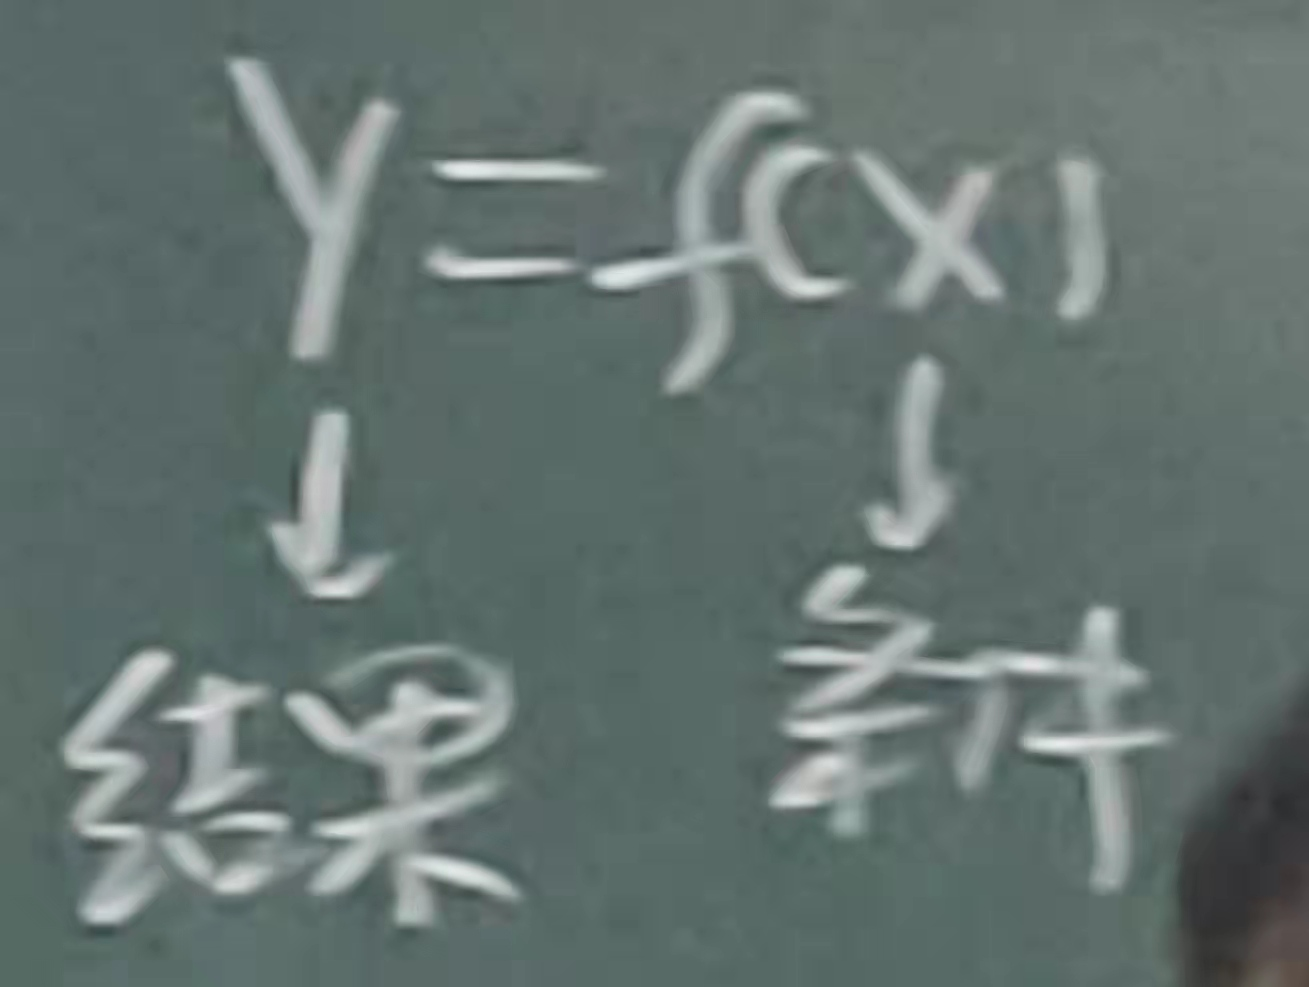 Y=f(x)
↓ ↓
结果 条件